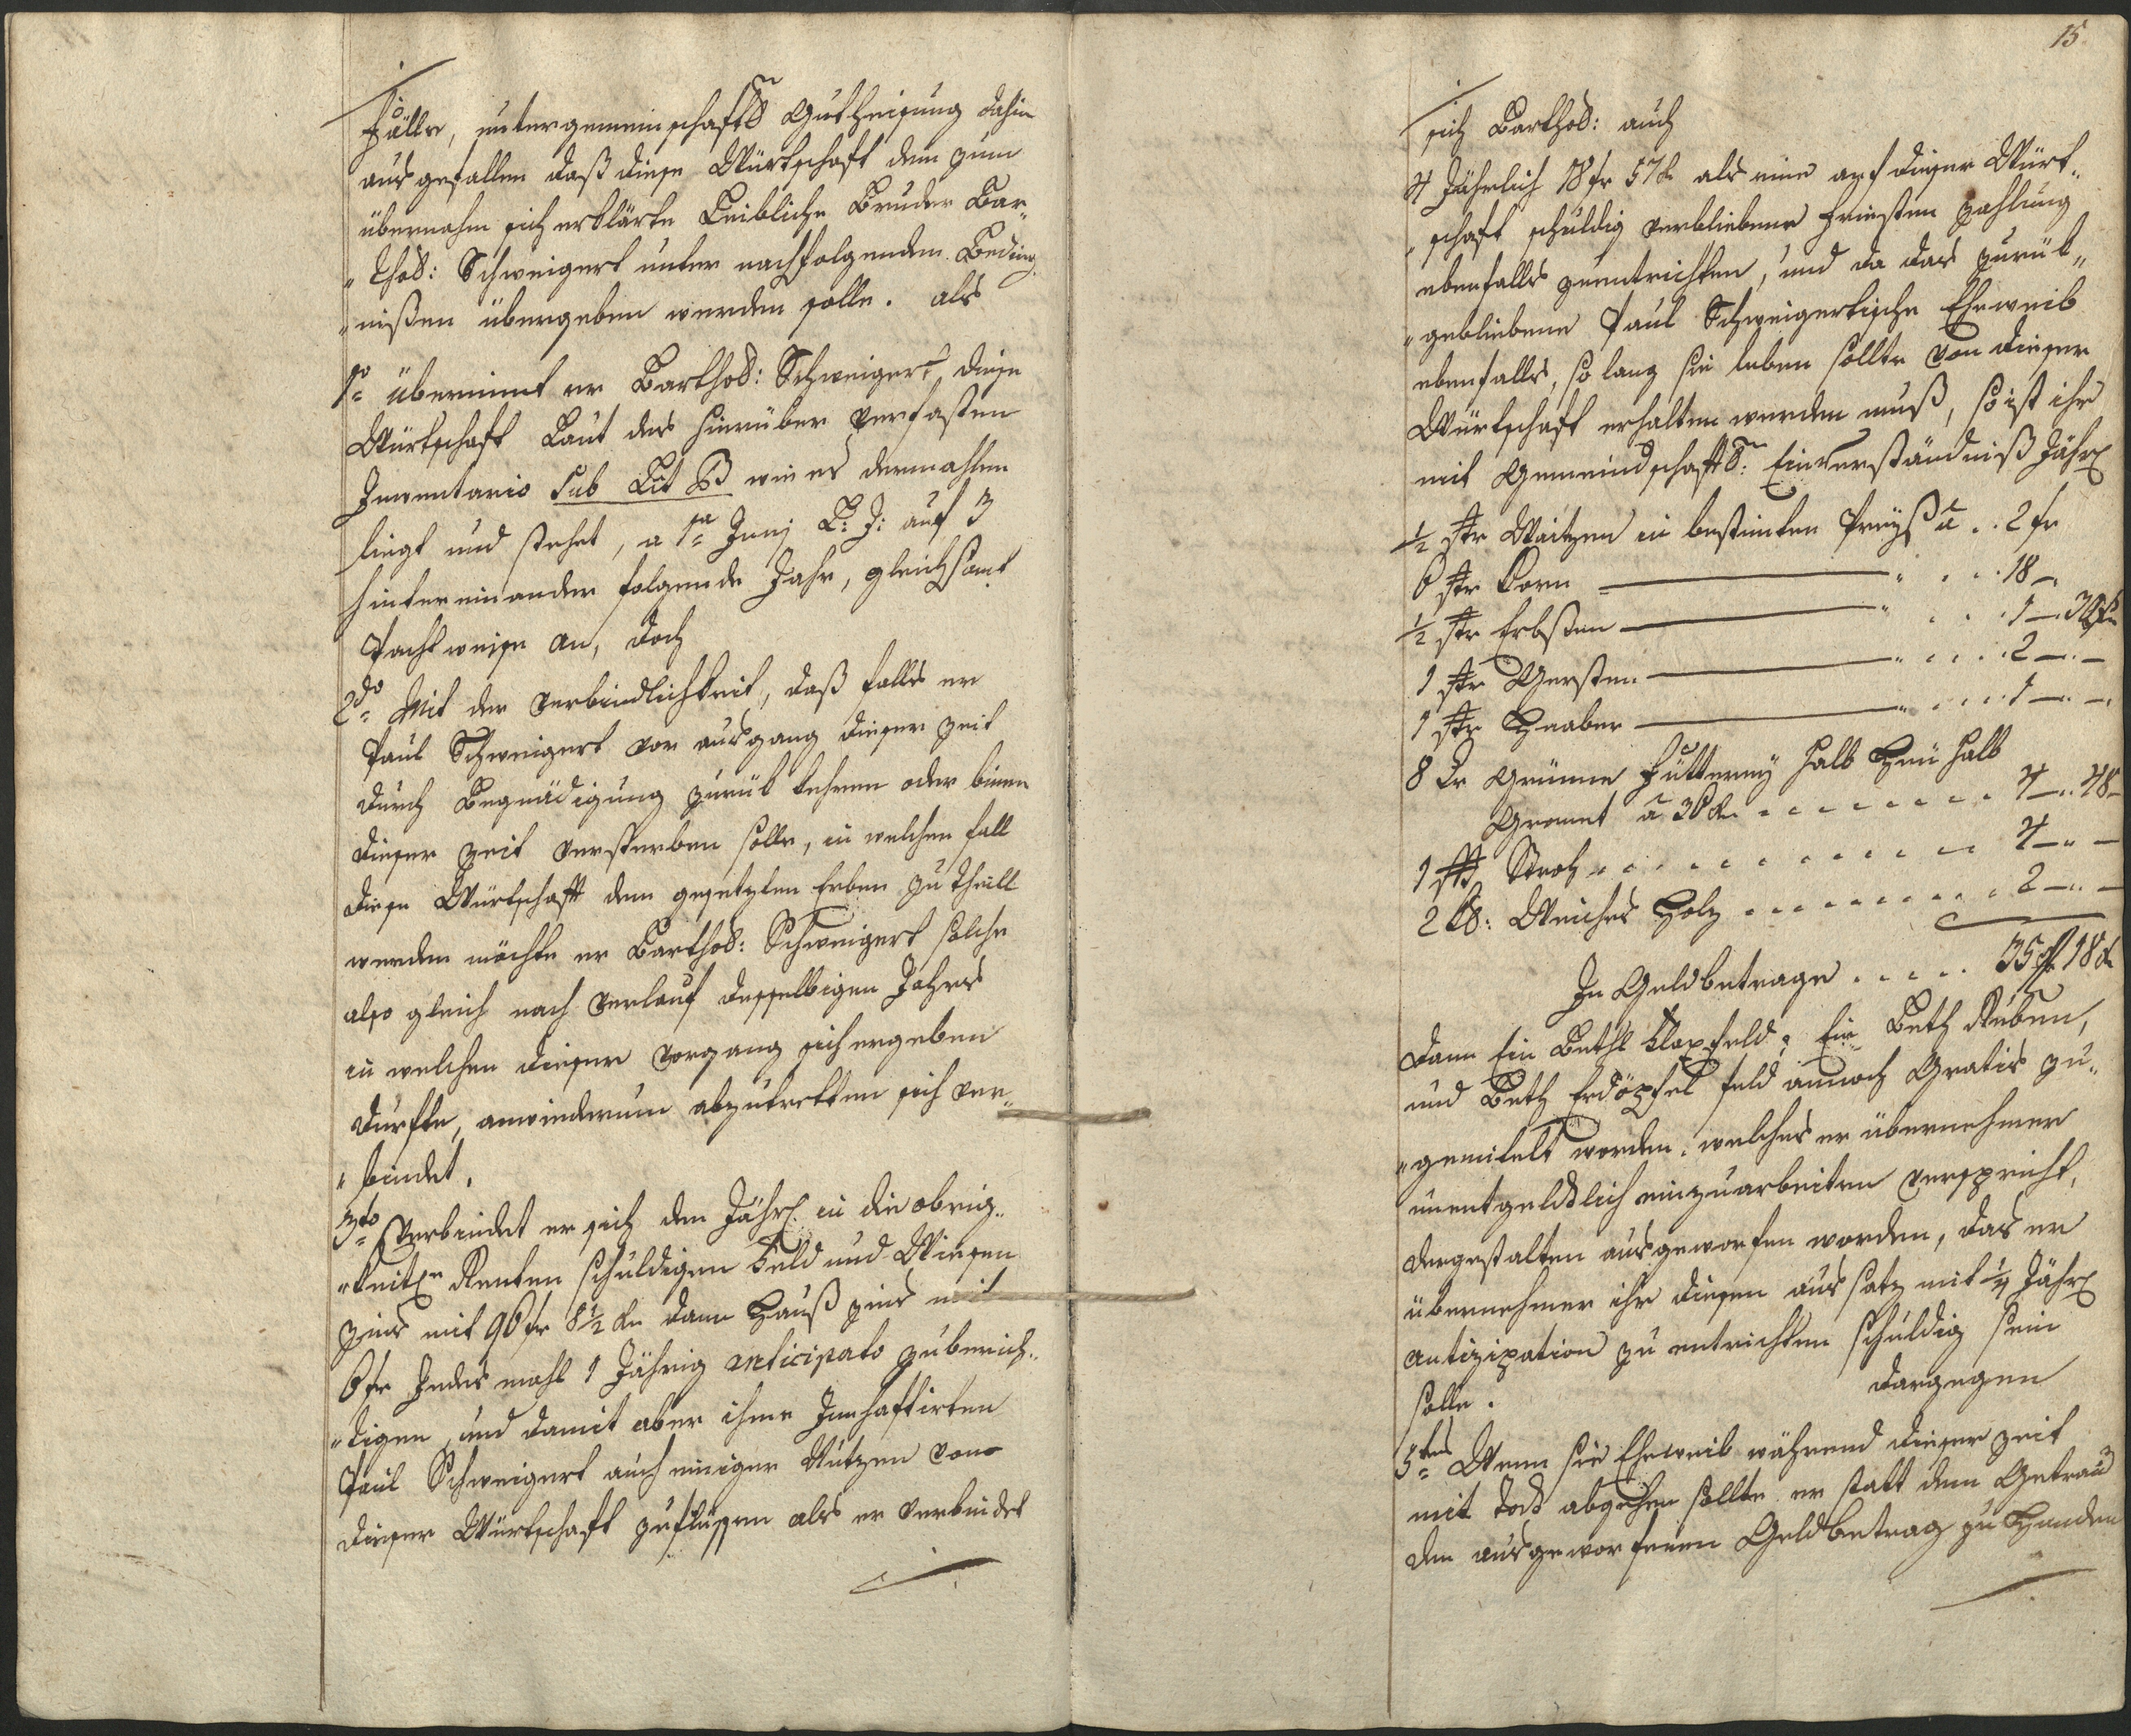 fälle, untergemeinschafts Gutheißung dahin
ausgefallen daß diese Würtschaft dem zum
übernehm sich erklärte Leibliche Bruder Bar„
„thol: Schweigert unter nachfolgenden Beding„
„nißen übergeben werden solle. als
1o übernimt er Barthol: Schweigert diese
Würtschaft Laut des hierüber verfasten
Inventario sub Lit B wie es dermahlen
liegt und stehet, a 1a Junj L: J: auf 3
hintereinander folgende Jahr, gleichsamt
Pachtweise an, doch
2do Mit der Verbindlichkeit, daß falls er
Paul Schweigert vor ausgang dieser zeit
durch Begnädigung zurük kehren oder binen
dieser zeit versterben solle, in welchen fall
diese Würtschaft dem gesetzten Erben zu theill
werden möchte er Barthol: Schweigert solche
also gleich nach Verlauf desselbigen Jahres
in welchen dieser Vorgang sich ergeben
durfte, anwiederum abzutretten sich ver„
„bindet.
3tio Verbindet er sich den Jährl in die obrig„
„keitln Renten schuldigen feld und Wiesen
zins mit 96 fr 8½ kr dann Hauß zins mit
6 fr Jedes mahl 1 Jährig anticipato zuberich„
„tigen, und damit aber ihme Innhaftirten
Paul Schweigert auch einiger Nutzen von
dieser Würtschaft zuflüssen als er verbindet
15
sich Barthol: auch
4 Jährlich 18 fr 57 kr als eine auf dieser Würt„
„schaft schuldig verbliebene Friesten zahlung
ebenfalls zuentrichten, und da das zurük„
„gebliebene Paul Schweigertische Eheweib
ebenfalls, so lang sie leben sollte von dieser
Würtschaft erhalten werden muß, so ist ihr
mit Gemeindschaftl: Einverständniß Jährl
½ Str Waitzen in bestimten Preyß a .. 2 fr
6 Str Korn — „ . . . 18 —
½ Str Erbßen — „ . . . 1 — 30 kr
1 Str Gersten — „ . . . 2 — „ —
1 Str Haaber — „ . . . 1 — „ —
8 Cr Grünne Futterey halb Heu halb
Gromet a 36 kr . . . . . . . 4 — „ 48 —
1 Stroh . . . . . . . . 4 — „ —
2 Kl: Weiches Holz . . . . . . . . 2 — „ —
In Geldbetrage . . . . . 35 fr 18 kr
dann Ein Bethl feld, Ein Beth Rüben,
und Beth Erdöpfel feld annoch Gratis zu„
„gemitelt worden. welches er übernehmer
unentgeldlich einzuarbeiten verspricht,
dergestalten ausgeworfen worden, das er
übernehmer ihr diesen aussatz mit ¼ Jährl
Antizipation zu entrichten schuldig sein
solle. dargegen
5tens Wenn sie Eheweib während dieser zeit
mit Tod abgehen sollte er statt dem Getraid
den ausgeworfenen Geldbetrag zu Handen